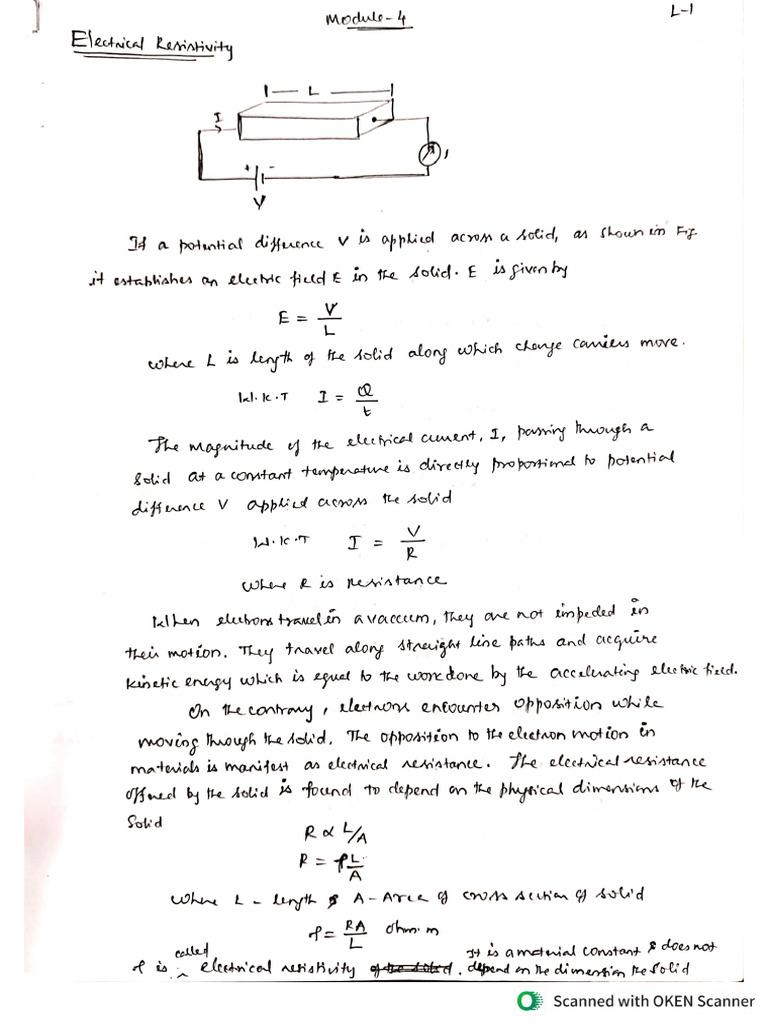 Module-4
L-1
Electrical Resistivity
L
I
+ -
V
If a potential difference V is applied across a solid, as shown in Fig
it establishes an electric field E in the solid. E is given by
E = V/L
where L is length of the solid along which charge carriers move.
W.K.T I = Q/t
The magnitude of the electrical current, I, passing through a
solid at a constant temperature is directly proportional to potential
difference V applied across the solid
W.K.T I = V/R
where R is resistance
When electrons travel in a vaccum, they are not impeded in
their motion. They travel along straight line paths and acquire
kinetic energy which is equal to the work done by the accelerating electric field.
On the contrary, electrons encounter opposition while
moving through the solid. The opposition to the electron motion in
materials is manifest as electrical resistance. The electrical resistance
offered by the solid is found to depend on the physical dimensions of the
Solid
R ∝ L/A
R = ρL/A
where L - length & A - Area of cross section of solid
ρ = RA/L ohm.m
ρ is called electrical resistivity of the solid. It is a material constant & does not
depend on the dimension the solid
Scanned with OKEN Scanner